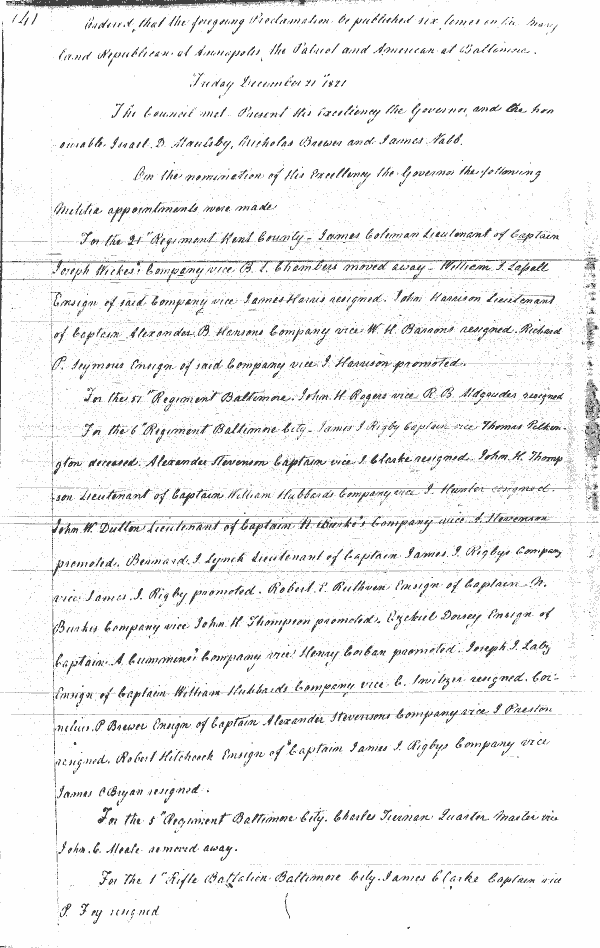 141
Ordered, that the foregoing Proclamation be published six times in the Mary
land Republican at Annapolis, the Patriot and American at Baltimore.
Friday December 21" 1821
The Council met Present His Excellency the Governor and the hon
ourable Israel D. Maulsby, Nicholas Brewer and James Nabb.
On the nomination of His Excellency the Governor the following
Militia appointments were made
For the 21" Regiment Kent County - James Coleman Lieutenant of Captain
Joseph Wickes' Company vice B. L. Chambers moved away - William J. Lassell
Ensign of said Company vice James Harris resigned. John Harrison Lieutenant
of Captain Alexander B. Hansons Company vice W. H. Barrons resigned. Richard
P. Seymour Ensign of said Company vice J. Harrison promoted.
For the 51" Regiment Baltimore. John H. Rogers vice R. B. Magruder resigned
For the 6" Regiment Baltimore City - James J Rigby Captain vice Thomas Pilken-
gton deceased. Alexander Stevenson Captain vice J. Clarke resigned. John H. Thomp
son Lieutenant of Captain William Hubbards Company vice J. Hunter resigned.
John W. Dutton Lieutenant of Captain N. Burke's Company vice A. Stevenson
promoted. Bernard J. Lynch Lieutenant of Captain James J. Rigbys Company
vice James J. Rigby promoted. Robert E. Ruthven Ensign of Captain N.
Burkes Company vice John H Thompson promoted. Ezekiel Dorsey Ensign of
Captain A. Cummins' Company vice Henry Corban promoted. Joseph J.
Ensign of Captain William Hubbards Company vice C. Switzer resigned. Cor-
nelius. P Brewer Ensign of Captain Alexander Stevensons Company vice J Preston
resigned. Robert Hitchcock Ensign of Captain James J. Rigbys Company vice
James C Bryan resigned.
For the 5" Regiment Baltimore City. Charles Tiernan Quarter Master vice
John. C. Moale removed away.
For the 1" Rifle Battalion Baltimore City. James Clarke Captain vice
P. Foy resigned